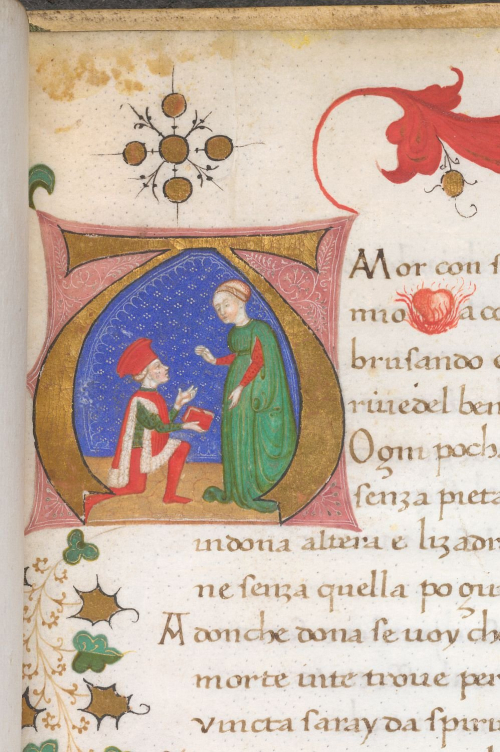 AMor con s
mio a co
brusando e
riuedel ben
Ogni poch
senza pieta
indona altera e lizadr
ne senza quella po gu
Adonche dona se uoy che
morte uite troue per
vincta saray da spiri